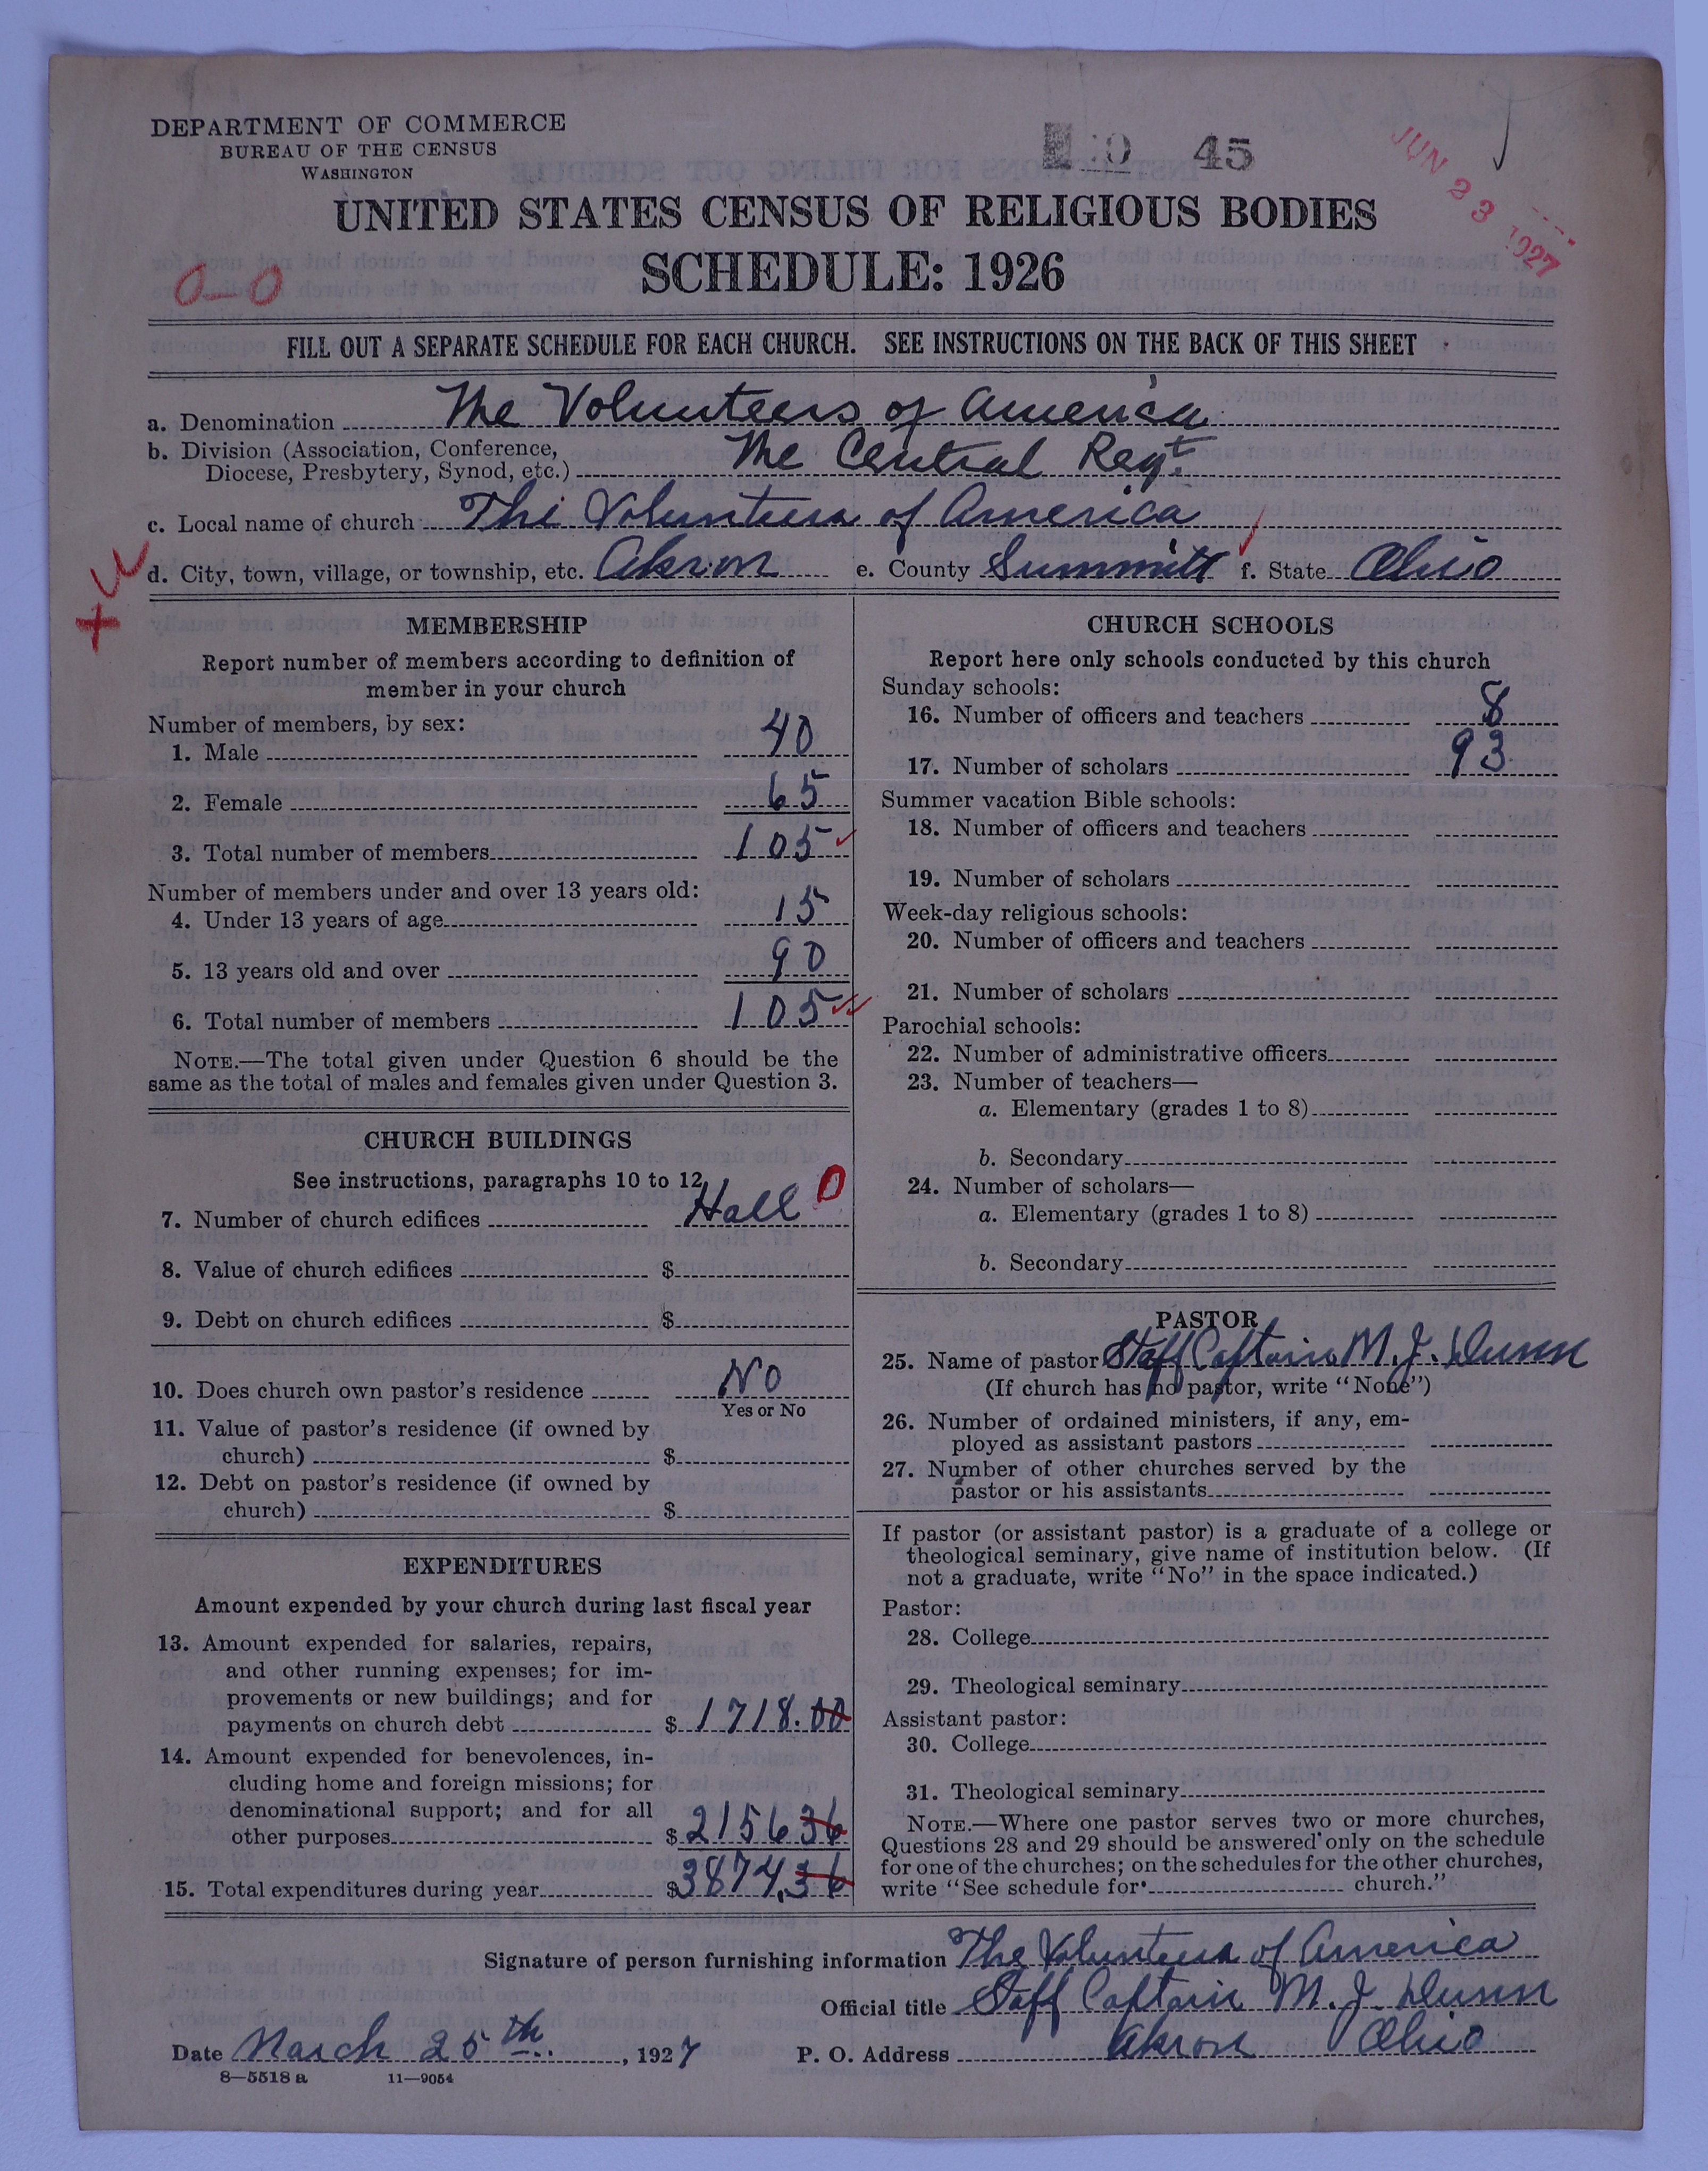 DEPARTMENT OF COMMERCE
BUREAU OF THE CENSUS
WASHINGTON
45
JUN 23 1927
UNITED STATES CENSUS OF RELIGIOUS BODIES
SCHEDULE: 1926
0-0
FILL OUT A SEPARATE SCHEDULE FOR EACH CHURCH. SEE INSTRUCTIONS ON THE BACK OF THIS SHEET
a. Denomination The Volunteers of America
b. Division (Association, Conference,
Diocese, Presbytery, Synod, etc.) The Central Regt.
c. Local name of church The Volunteers of America
d. City, town, village, or township, etc. Akron e. County Summitt f. State Ohio
MEMBERSHIP
Report number of members according to definition of
member in your church
Number of members, by sex:
1. Male 40
2. Female 65
3. Total number of members 105
Number of members under and over 13 years old:
4. Under 13 years of age 15
5. 13 years old and over 90
6. Total number of members 105
NOTE.—The total given under Question 6 should be the
same as the total of males and females given under Question 3.
CHURCH BUILDINGS
See instructions, paragraphs 10 to 12
7. Number of church edifices Hall 0
8. Value of church edifices $
9. Debt on church edifices $
10. Does church own pastor's residence No
Yes or No
11. Value of pastor's residence (if owned by
church) $
12. Debt on pastor's residence (if owned by
church) $
EXPENDITURES
Amount expended by your church during last fiscal year
13. Amount expended for salaries, repairs,
and other running expenses; for im-
provements or new buildings; and for
payments on church debt $ 1718.00
14. Amount expended for benevolences, in-
cluding home and foreign missions; for
denominational support; and for all
other purposes $ 2156 36
15. Total expenditures during year $ 3874.36
CHURCH SCHOOLS
Report here only schools conducted by this church
Sunday schools:
16. Number of officers and teachers 8
17. Number of scholars 93
Summer vacation Bible schools:
18. Number of officers and teachers
19. Number of scholars
Week-day religious schools:
20. Number of officers and teachers
21. Number of scholars
Parochial schools:
22. Number of administrative officers
23. Number of teachers—
a. Elementary (grades 1 to 8)
b. Secondary
24. Number of scholars—
a. Elementary (grades 1 to 8)
b. Secondary
PASTOR
25. Name of pastor Staff Captain M. J. Dunn
(If church has no pastor, write "None")
26. Number of ordained ministers, if any, em-
ployed as assistant pastors
27. Number of other churches served by the
pastor or his assistants
If pastor (or assistant pastor) is a graduate of a college or
theological seminary, give name of institution below. (If
not a graduate, write "No" in the space indicated.)
Pastor:
28. College
29. Theological seminary
Assistant pastor:
30. College
31. Theological seminary
NOTE.—Where one pastor serves two or more churches,
Questions 28 and 29 should be answered only on the schedule
for one of the churches; on the schedules for the other churches,
write "See schedule for church."
Signature of person furnishing information The Volunteers of America
Official title Staff Captain M. J. Dunn
Date March 25th, 1927 P. O. Address Akron Ohio
8—5518 a 11—9054